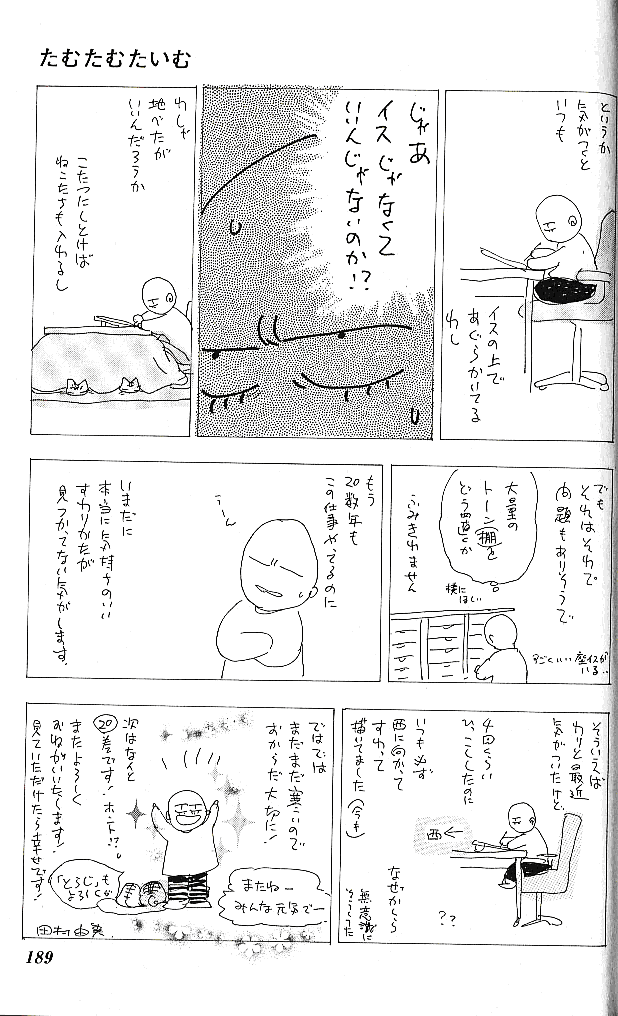 たむたむたいむ
というか
気がつくと
いつも
イスの上で
あぐらかいてる
わし
じゃあ
イスじゃなくて
いいんじゃないのか!?
わしゃ
地べたが
いいんだろうか
こたつにしとけば
ねこたちも入れるし
でも
それはそれで
問題もありそうで
大量の
トーン棚を
どう置くか
ふみきれません
横に
ほしい
すごくいい座イスが
いる…
もう
20数年も
この仕事やってるのに
うーん
いまだに
本当に気持ちのいい
すわりかたが
見つかってない気がします。
そういえば
わりと最近
気がついたけど
4回くらい
ひっこしたのに
いつも必ず
西に向かって
すわって
描いてました(今も)
西←
なぜかしら
無意識に
そうしてた
??
ではでは
まだまだ寒いので
おからだ大切に!
次はなんと
⑳巻です!ホント!?
またよろしく
おねがいいたします!
見ていただけたら幸せです!
「とらじ」も
よろしくな
またねー
みんな元気でー
田村由美
189